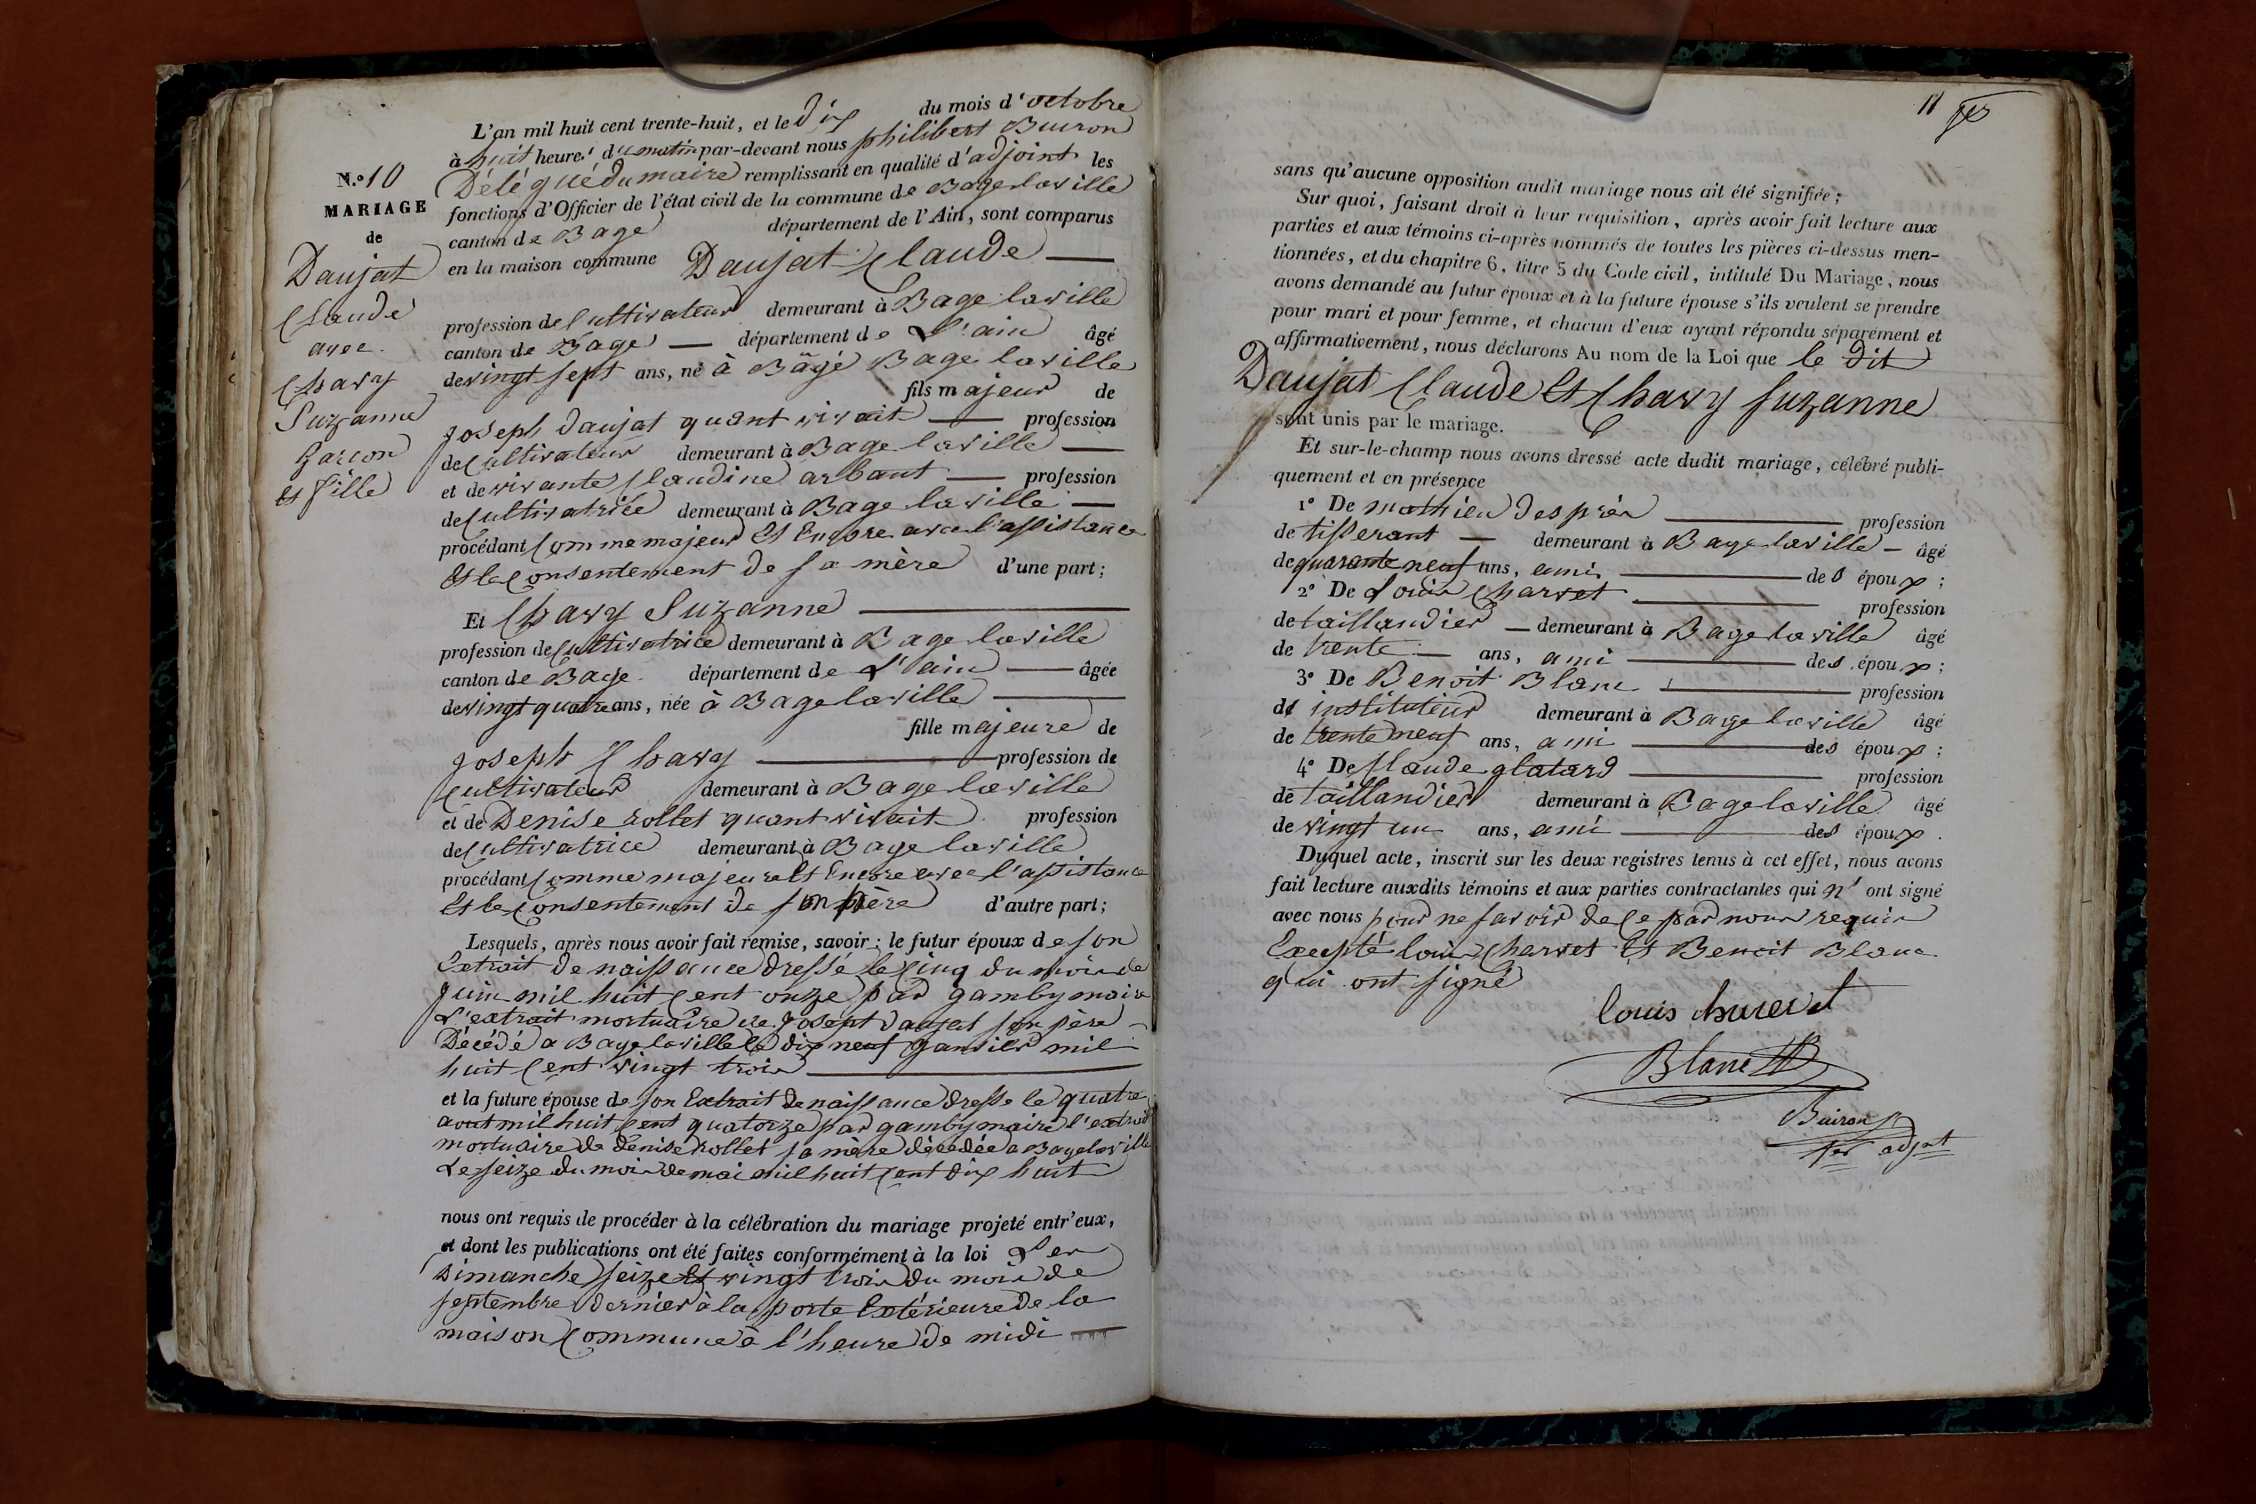 L'an mil huit cent trente-huit, et le dix du mois d'octobre
à huit heures du matin par-devant nous philibert Buiron
Délégué du maire remplissant en qualité d'adjoint les
N.º 10
MARIAGE
de
Daujat
Claude
avec
Chavy
Suzanne
garcon
et fille
fonctions d'Officier de l'état civil de la commune de Bagelaville
canton de Bagé département de l'Ain, sont comparus
en la maison commune Daujat Claude
profession de Cultivateur demeurant à Bage laville
canton de Bagé département de L'ain âgé
de vingt sept ans, né à Bagé Bage laville
fils majeur de
joseph daujat quant vivait profession
de Cultivateur demeurant à Bage laville
et de vivante Claudine arbant profession
de Cultivatrice demeurant à Bage laville
procédant Comme majeur Et Encore avec l'assistance
Et le Consentement de sa mère d'une part;
Et Chavy Suzanne
profession de Cultivatrice demeurant à Bage laville
canton de Bage département de L'ain âgée
de vingt quatre ans, née à Bagelaville
fille majeure de
joseph Chavy profession de
Cultivateur demeurant à Bagelaville
et de Denise rollet quant vivait profession
de Cultivatrice demeurant à Bage laville
procédant Comme majeure Et Encore avec l'assistance
Et le Consentement de son père d'autre part;
Lesquels, après nous avoir fait remise, savoir: le futur époux de son
Extrait de naissance dressé le Cinq du mois de
juin mil huit Cent onze par gamby maire
L'extrait mortuaire de joseph daujat son père
Décédé a Bagelaville le dix neuf janvier mil
huit Cent vingt trois
et la future épouse de son Extrait de naissance dresse le quatre
aout mil huit Cent quatorze par gamby maire l'extrait
mortuaire de denise rollet sa mère décedée a Bagelaville
Le seize du mois de mai mil huit Cent dix huit
nous ont requis de procéder à la célébration du mariage projeté entr'eux,
et dont les publications ont été faites conformément à la loi Les
Dimanche seize Et vingt trois du mois de
septembre dernier à la porte Extérieure de la
maison Commune à l'heure de midi
11
sans qu'aucune opposition audit mariage nous ait été signifiée;
Sur quoi, faisant droit à leur requisition, après avoir fait lecture aux
parties et aux témoins ci-après nommés de toutes les pièces ci-dessus men-
tionnées, et du chapitre 6, titre 5 du Code civil, intitulé Du Mariage, nous
avons demandé au futur époux et à la future épouse s'ils veulent se prendre
pour mari et pour femme, et chacun d'eux ayant répondu séparément et
affirmativement, nous déclarons Au nom de la Loi que le dit
Daujat Claude Et Chavy suzanne
sont unis par le mariage.
Et sur-le-champ nous avons dressé acte dudit mariage, célébré publi-
quement et en présence
1º De mathieu després profession
de tisserant demeurant à Bagelaville âgé
de quarante neuf ans, ami des époux;
2º De Louis Charvet profession
de taillandier demeurant à Bagelaville âgé
de trente ans, ami des époux;
3º De Benoit Blanc profession
de instituteur demeurant à Bagelaville âgé
de trente neuf ans, ami des époux;
4º De Claude glatard profession
de taillandier demeurant à Bagelaville âgé
de vingt un ans, ami des époux.
Duquel acte, inscrit sur les deux registres tenus à cet effet, nous avons
fait lecture auxdits témoins et aux parties contractantes qui n'ont signé
avec nous pour ne savoir de ce par nous requis
Excepté louis Charvet Et Benoit Blanc
qui ont signé
Louis charvet
Blanc
Buiron
1er adjoint